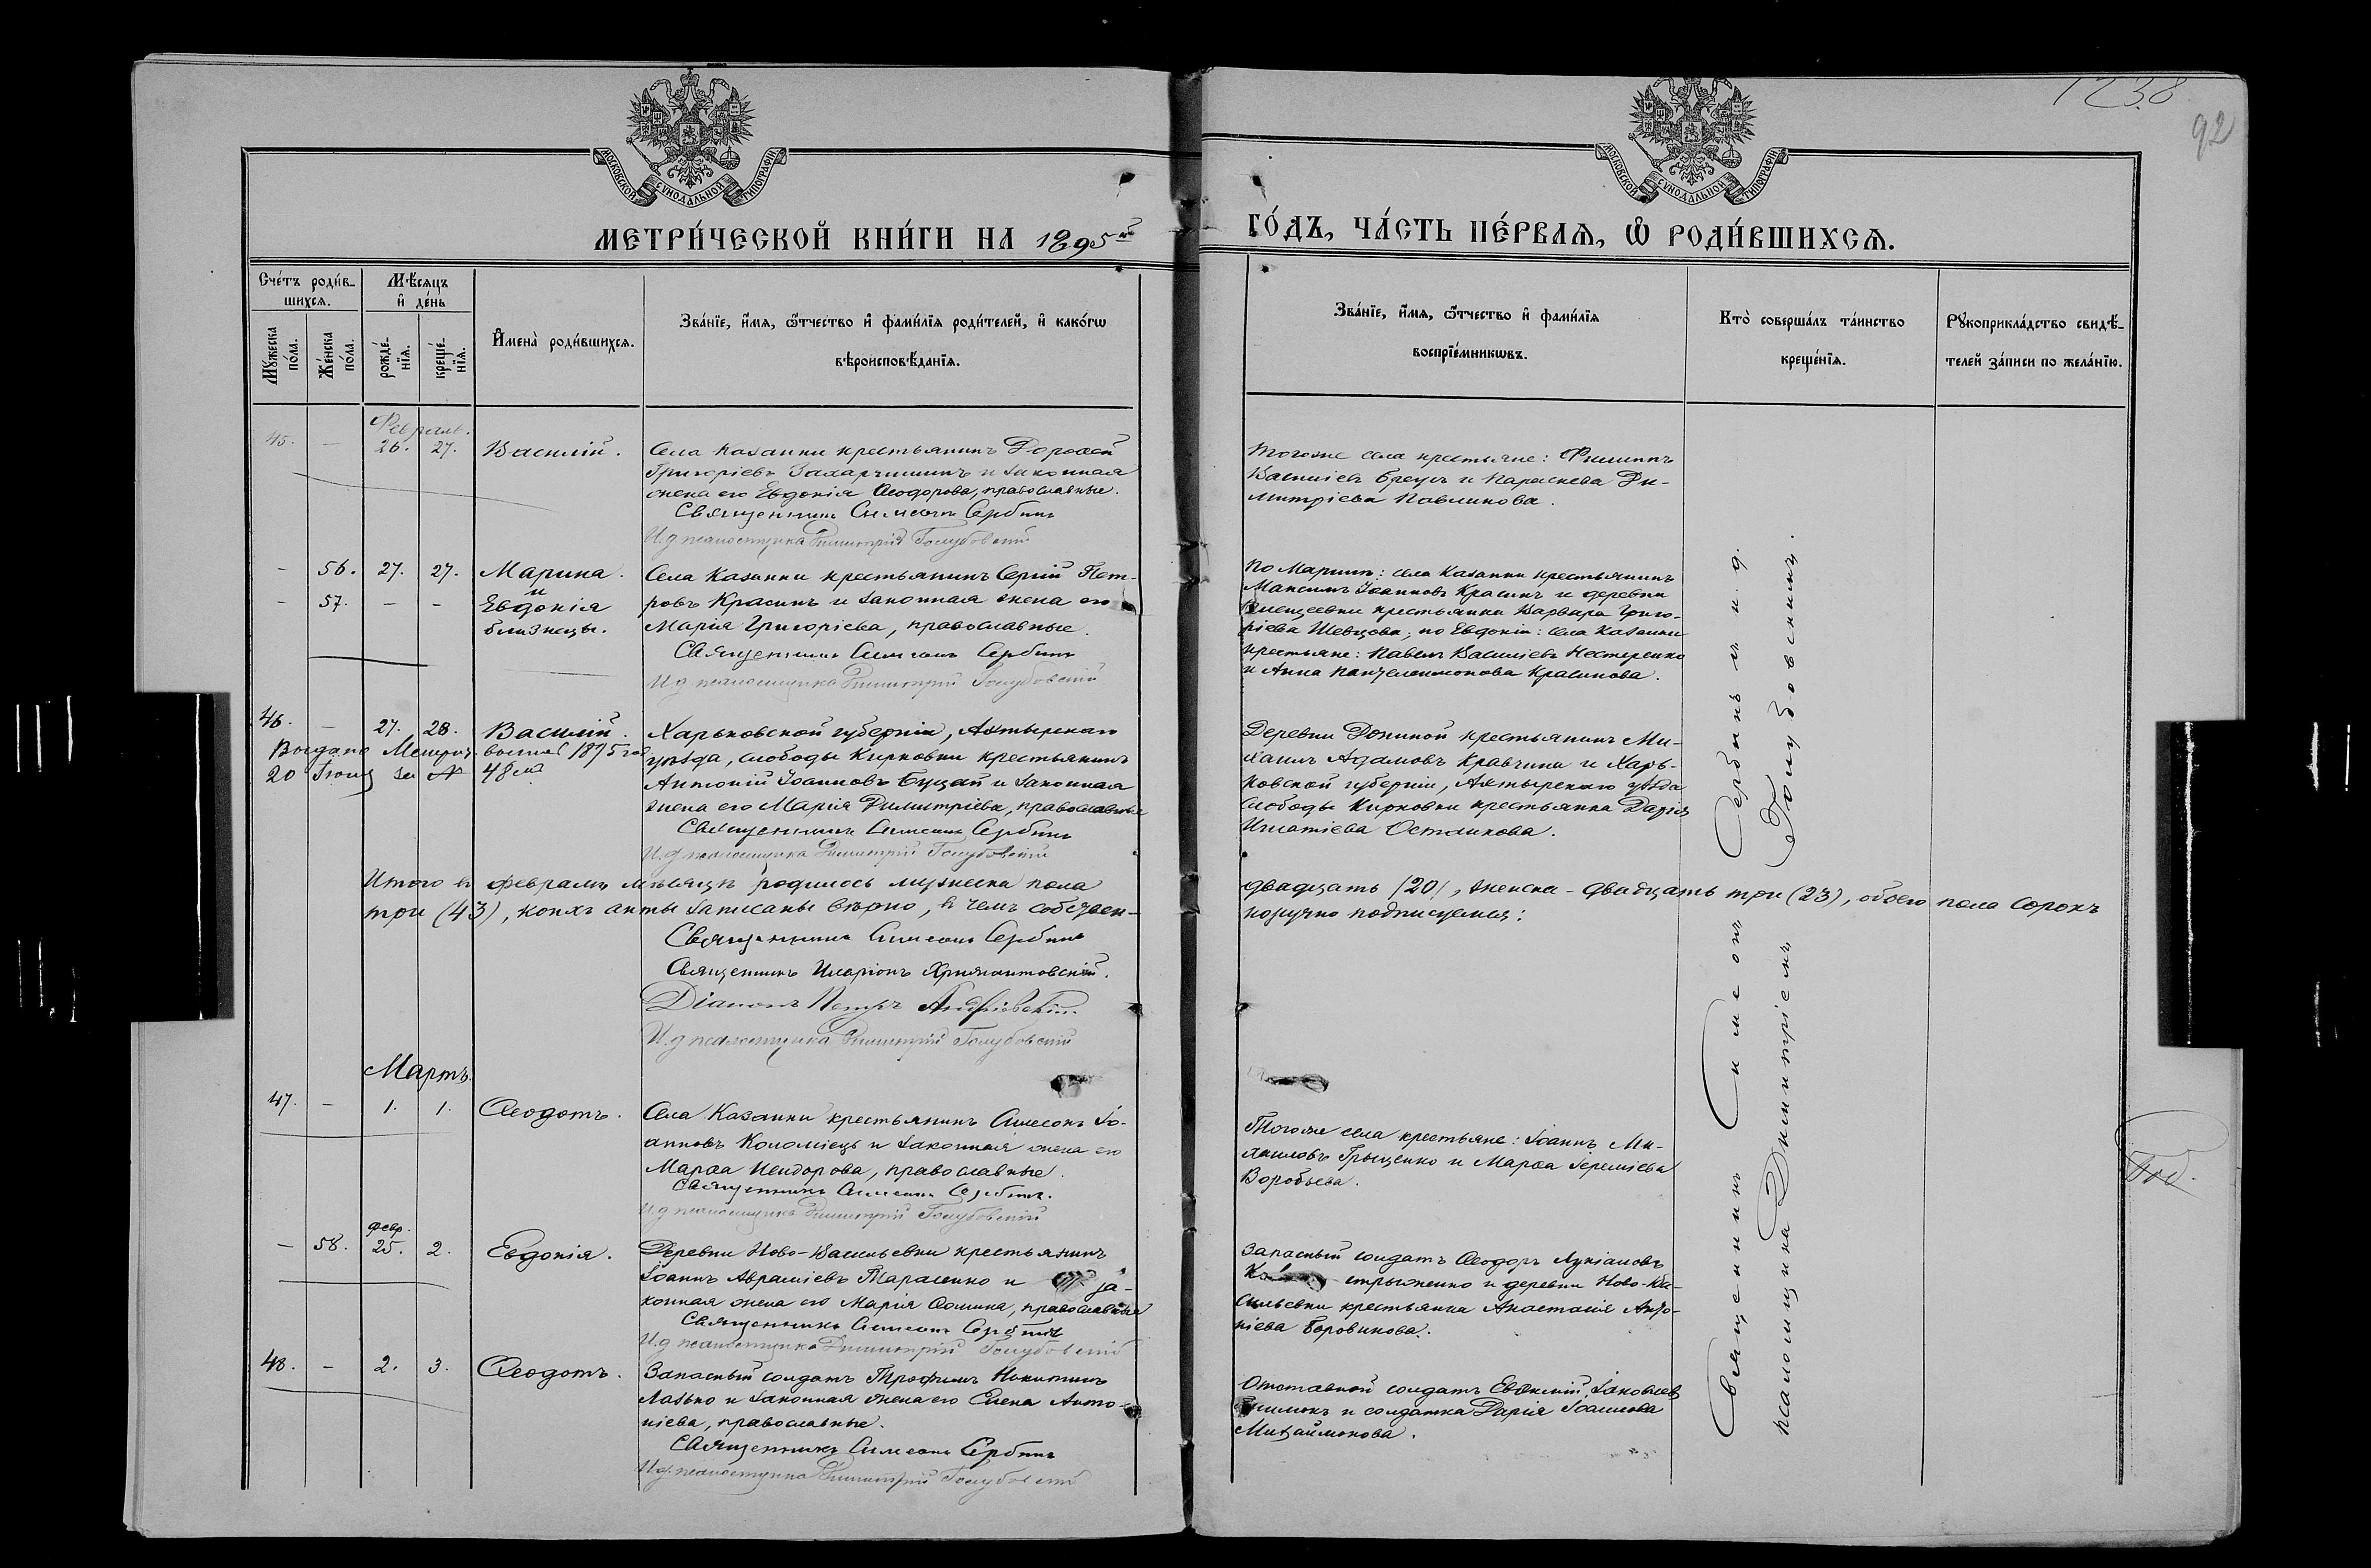 1238
92
МОСКОВСКОЙ СѴНОДАЛЬНОЙ ТИПОГРАФІИ
МОСКОВСКОЙ СѴНОДАЛЬНОЙ ТИПОГРАФІИ
МЕТРИ́ЧЕСКОЙ КНИ́ГИ НА 1895й
ГО́ДЪ, ЧА́СТЬ ПЕ́РВАѦ, Ѽ РОДИ́ВШИХСѦ.
Сче́тъ роди́в-
шихсѧ.
Мꙋ́жеска по́ла.
Же́нска по́ла.
Мѣ́сѧцъ
и҆ де́нь
рожде́-
нїѧ.
креще́-
нїѧ.
И҆мена̀ роди́вшихсѧ.
Зва́нїе, и҆́мѧ, ѻ҆́тчество и҆ фами́лїѧ роди́телей, и҆ како́гѡ
вѣроисповѣ́данїѧ.
Зва́нїе, и҆́мѧ, ѻ҆́тчество и҆ фами́лїѧ
воспрїе́мникѡвъ.
Кто̀ соверша́лъ та́инство
креще́нїѧ.
Рꙋкоприкла́дство свидѣ́-
телей за́писи по жела́нїю.
Февраль.
45. — 26. 27. Василій.
Села Казанки крестьянинъ Дороѳей
Григоріевъ Захарчишинъ и законная
жена его Евдокія Ѳеодорова, православные.
Священникъ Симеонъ Сербинъ
И.д псаломщика Димитрій Голубовскій
Тогоже села крестьяне: Филиппъ
Василіевъ Бреусъ и Параскева Ди-
митріева Павликова.
— 56. 27. 27. Марина.
и
— 57. — — Евдокія
близнецы.
Села Казанки крестьянинъ Сергій Пет-
ровъ Красинъ и законная жена его
Марія Григоріева, православные.
Священникъ Симеонъ Сербинъ
И.д псаломщика Димитрій Голубовскій
По Маринѣ: села Казанки крестьянинъ
Максимъ Іоанновъ Красинъ и деревни
крестьянка Варвара Григо-
ріева Шевцова; по Евдокіи: села Казанки
крестьяне: Павелъ Василіевъ Нестеренко
и Анна Пантелеимонова Красинова.
46. — 27. 28. Василій.
Выдана Метрич. выпись 1895 год
20 Іюня за № 48ой
Харьковской губерніи, Ахтырскаго
уѣзда, слободы Кириковки крестьянинъ
Антоній Іоанновъ Буцай и законная
жена его Марія Димитріева, православные
Священникъ Симеонъ Сербинъ
И.д псаломщика Димитрій Голубовскій
Деревни крестьянинъ Ми-
хаилъ Адамовъ Кравчина и Харь-
ковской губерніи, Ахтырскаго уѣзда
слободы Кириковки крестьянка Дарія
Игнатіева Остапкова.
Итого въ февралѣ мѣсяцѣ родилось мужеска пола
двадцать (20), женска - двадцать три (23), обоего пола сорокъ
три (43), коихъ акты записаны вѣрно, въ чемъ собствен-
норучно подписуемся:
Священникъ Симеонъ Сербинъ
Священникъ Иларіонъ
Діаконъ Петръ
И.д псаломщика Димитрій Голубовскій
Мартъ.
47. — 1. 1. Ѳеодотъ.
Села Казанки крестьянинъ Симеонъ Іо-
анновъ Коломіецъ и законная жена его
Марѳа Исидорова, православные.
Священникъ Симеонъ Сербинъ.
И.д псаломщика Димитрій Голубовскій
Тогоже села крестьяне: Іоаннъ Ми-
хаиловъ Грыценко и Марѳа Іереміева
Воробьева.
Февр.
— 58. 25. 2. Евдокія.
Деревни Ново-Васильевки крестьянинъ
Іоаннъ Авраміевъ Тарасенко и за-
конная жена его Марія Ѳомина, православные
Священникъ Симеонъ Сербинъ
И.д псаломщика Димитрій Голубовскій
Запасный солдатъ Ѳеодоръ Лукіановъ
и деревни Ново-Ва-
сильевки крестьянка Анастасія Анто-
ніева Боровикова.
48. — 2. 3. Ѳеодотъ.
Запасный солдатъ Трофимъ Никитинъ
Лазько и законная жена его Елена Анто-
ніева, православные.
Священникъ Симеонъ Сербинъ
И.д. псаломщика Димитрій Голубовскій
Отставной солдатъ Евѳимій Іаковлевъ
и солдатка Дарія Іоаннова
Священникъ Симеонъ Сербинъ и и. д.
псаломщика Димитрій Голубовскій.